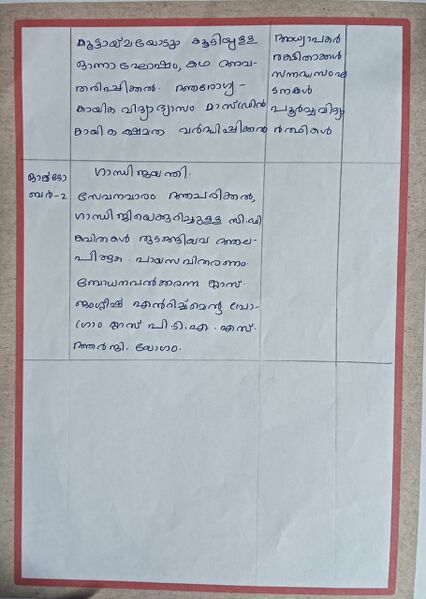 കൂട്ടായ്മയോടും കൂടിയുള്ള
ഓണാഘോഷം, കഥ അവ-
തരിപ്പിക്കൽ. ആരോഗ്യ -
കായിക വിദ്യാഭ്യാസം മാസ്ഡ്രിൽ
കായികക്ഷമത വർദ്ധിപ്പിക്കൽ
അധ്യാപകർ
രക്ഷിതാക്കൾ
സന്നദ്ധസംഘ
ടനകൾ
പൂർവ്വവിദ്യാ
ർത്ഥികൾ
ഒക്ടോ
ബർ-2
ഗാന്ധിജയന്തി.
സേവനവാരം ആചരിക്കൽ,
ഗാന്ധിജിയെക്കുറിച്ചുള്ള സി.ഡി
കവിതകൾ തുടങ്ങിയവ ആല-
പിക്കുക. പായസവിതരണം.
ബോധനവൽക്കരണ ക്ലാസ്
ഇംഗ്ലീഷ് എൻറിച്ച്മെന്റ് പ്രോ-
ഗ്രാം ക്ലാസ് പി.ടി.എ. എസ്.
ആർ.ജി. യോഗം.